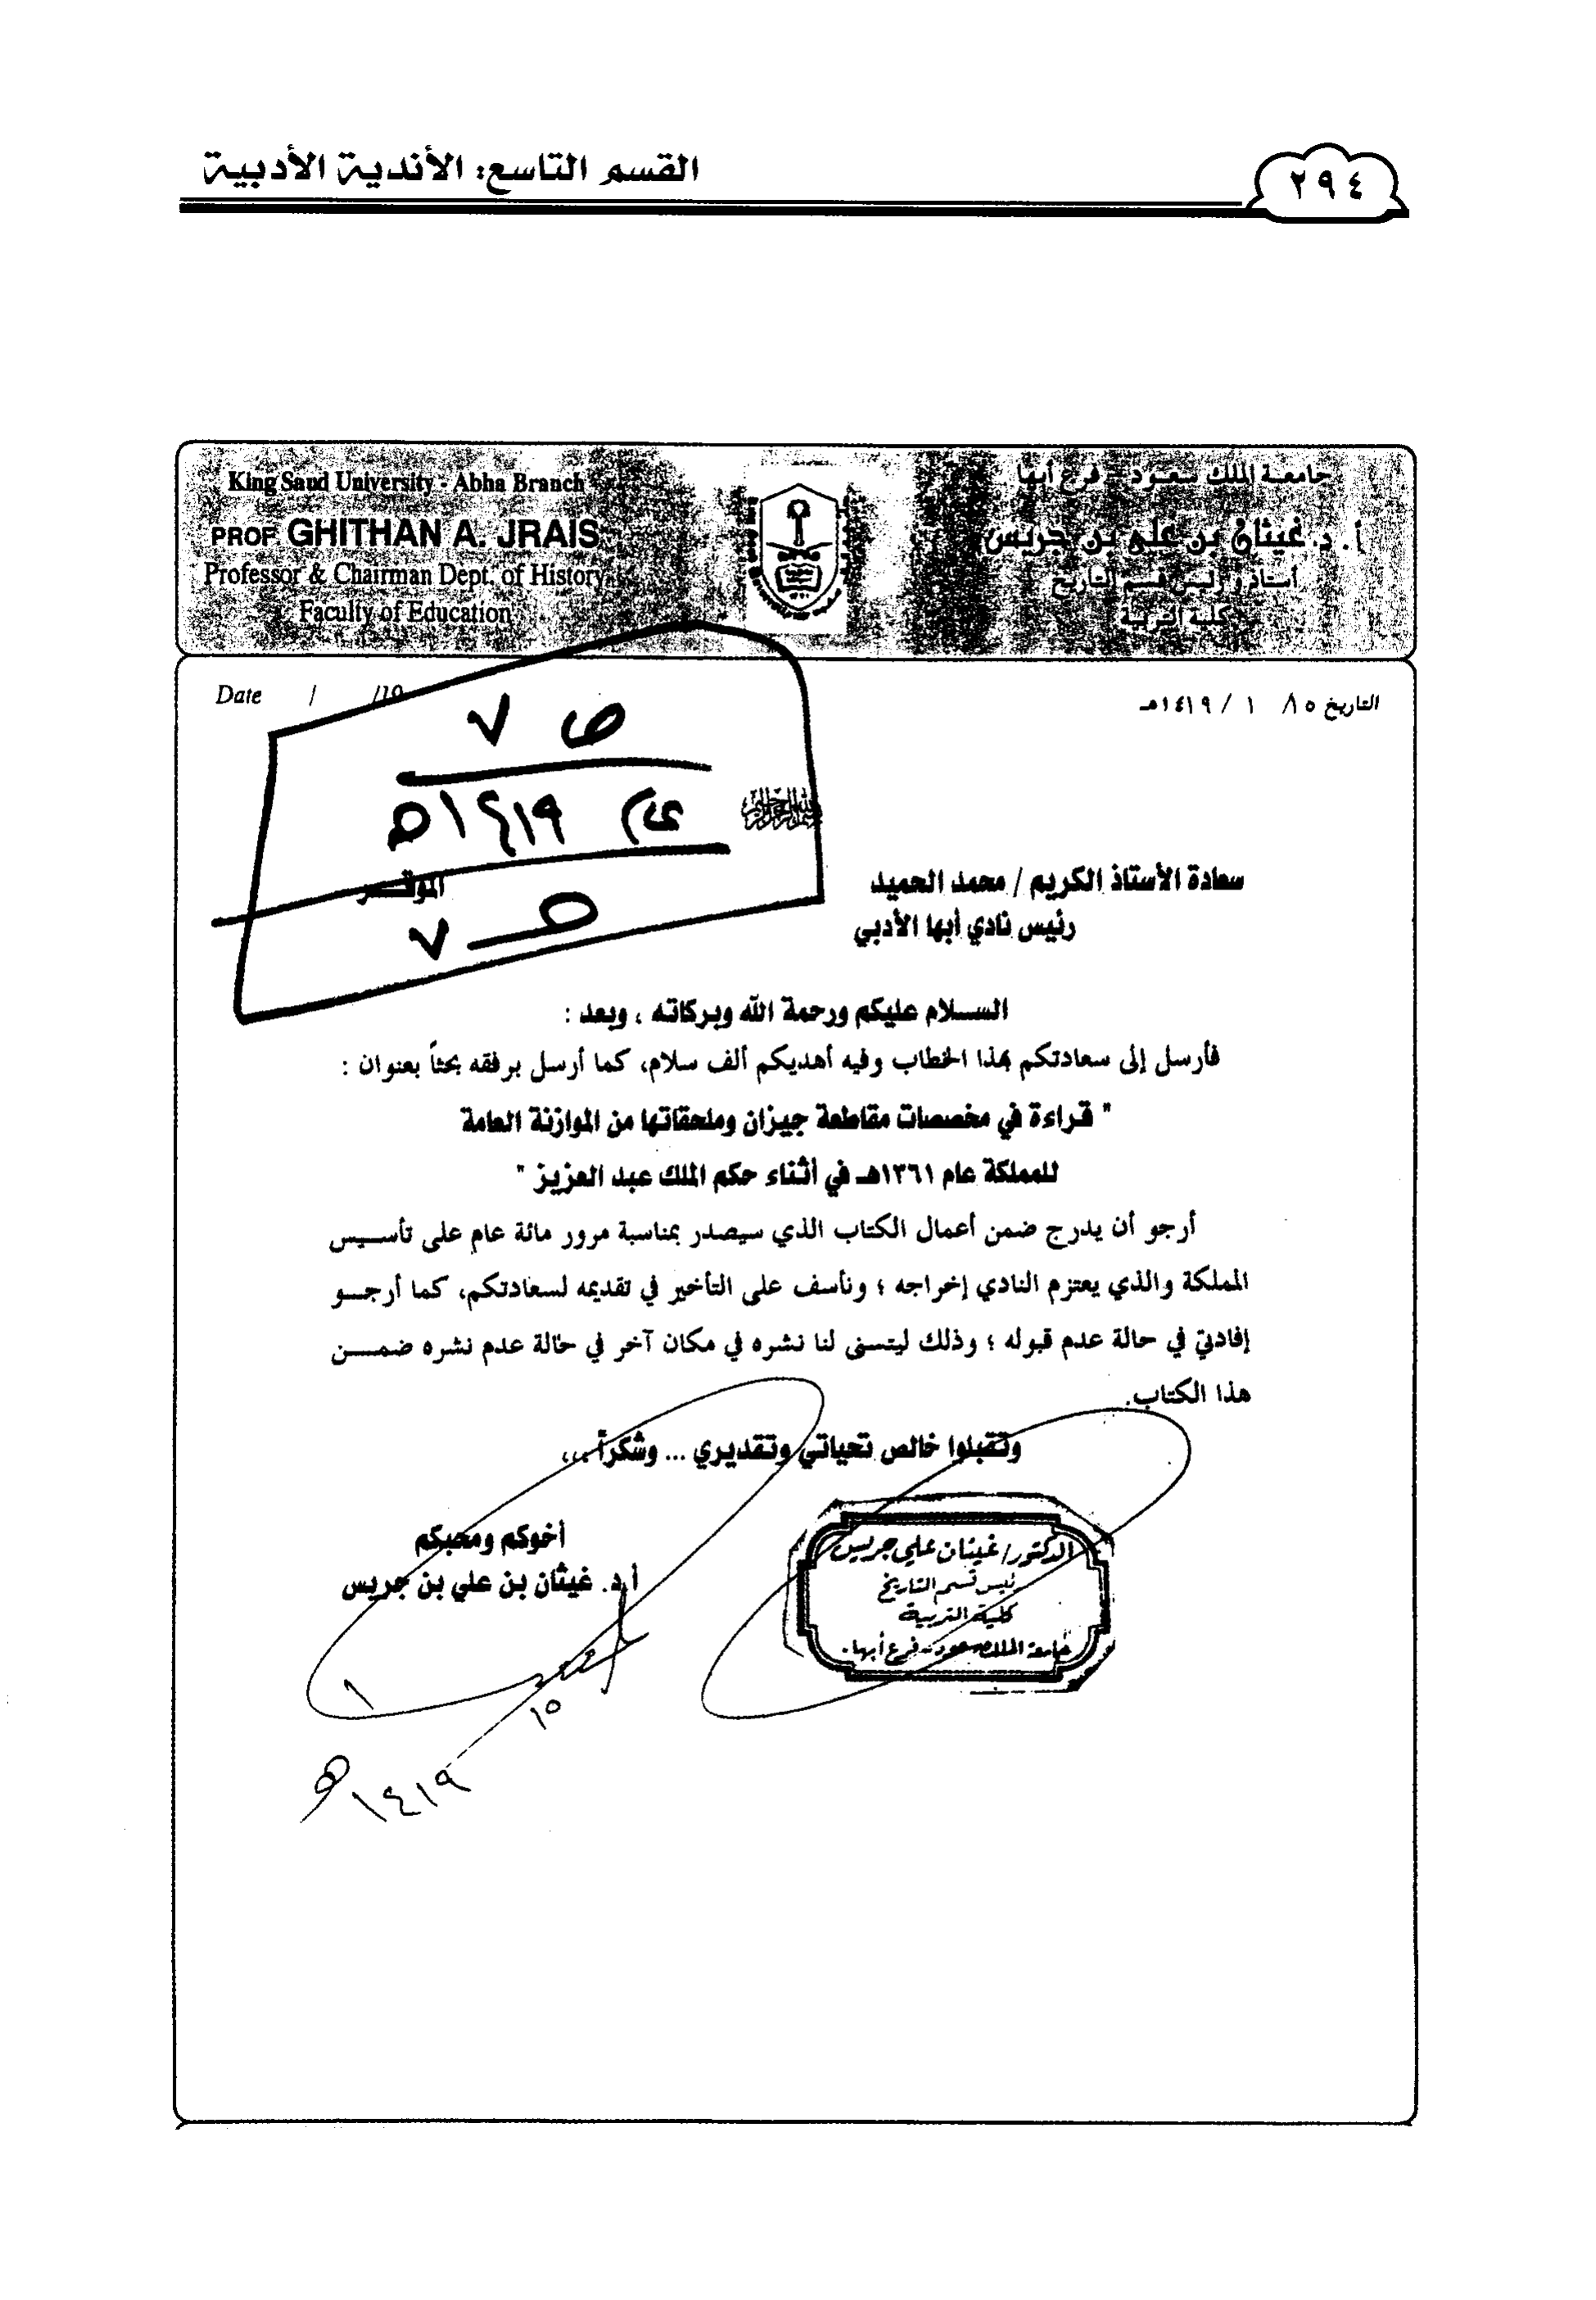 القسم التاسع: الأندية الأدبية
٢٩٤
King Saud University - Abha Branch
PROF. GHITHAN A. JRAIS
Professor & Chairman Dept. of History
Faculty of Education
جامعة الملك سعود - فرع أبها
أ. د. غيثان بن علي بن جريس
أستاذ ورئيس قسم التاريخ
كلية التربية
Date / /19
التاريخ ٨٥/ ١ / ١٤١٩هـ
ص ٧
عام ١٤١٩هـ
ص ٧
بسم الله الرحمن الرحيم
سعادة الأستاذ الكريم / محمد الحميد الموقــر
رئيس نادي أبها الأدبي
الســلام عليكم ورحمة الله وبركاته ، وبعد :
فأرسل إلى سعادتكم بهذا الخطاب وفيه أهديكم ألف سلام، كما أرسل برفقه بحثاً بعنوان :
" قراءة في مخصصات مقاطعة جيزان وملحقاتها من الموازنة العامة
للمملكة عام ١٣٦١هـ في أثناء حكم الملك عبد العزيز "
أرجو أن يدرج ضمن أعمال الكتاب الذي سيصدر بمناسبة مرور مائة عام على تأسـيس
المملكة والذي يعتزم النادي إخراجه ؛ ونأسف على التأخير في تقديمه لسعادتكم، كما أرجــو
إفادتي في حالة عدم قبوله ؛ وذلك ليتسنى لنا نشره في مكان آخر في حالة عدم نشره ضمــن
هذا الكتاب.
وتقبلوا خالص تحياتي وتقديري ... وشكراً ،،،
أخوكم ومحبكم
أ.د. غيثان بن علي بن جريس
الدكتور/ غيثان علي جريس
رئيس قسم التاريخ
كلية التربية
جامعة الملك سعود - فرع أبها.
١٥
١
١٤١٩هـ